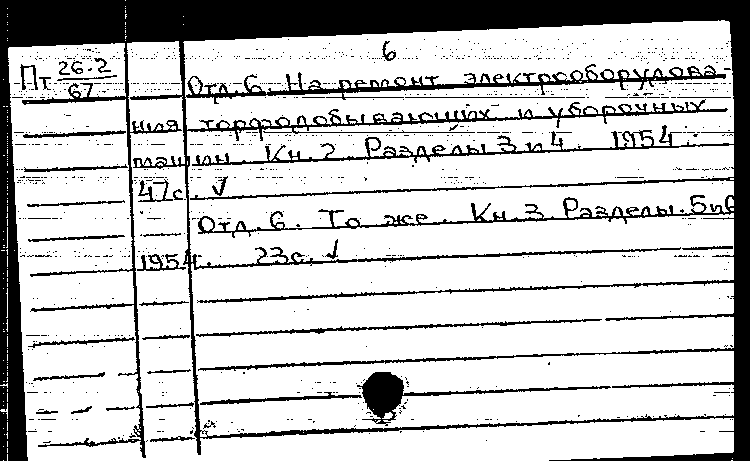 6
Пт 26.2/67
Отд. 6. На ремонт электрооборудова-
ния торфодобывающих и уборочных
машин. Кн. 2. Разделы 3 и 4. 1954.
47с. ✓
Отд. 6. То же. Кн. 3. Разделы. 5 и 6
1954. 23с. ✓